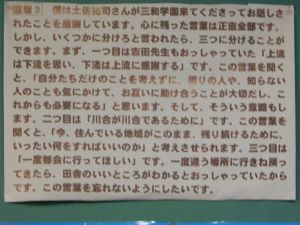 原稿3　僕は土佐祐司さんが三和学園来てくださってお話しさ
れたことを感謝しています。心に残った言葉は正直全部です。
しかし、いくつかに分けろと言われたら、三つに分けることが
できます。まず、一つ目は吉田先生もおっしゃっていた「上流
は下流を思い、下流は上流に感謝する」です。この言葉を聞く
と、「自分たちだけのことを考えずに、周りの人や、知らない
人のことも気にかけて、お互いに助け合うことが大切だし、こ
れからも必要になる」と思います。そして、そういう意識もし
ます。二つ目は「川合が川合であるために」です。この言葉を
聞くと、「今、住んでいる地域がこのまま、残り続けるために、
いったい何をすればいいのか」と考えさせられます。三つ目は
「一度都会に行ってほしい」です。一度違う場所に行きね戻っ
てきたら、田舎のいいところがわかるとおっしゃっていたから
です。この言葉を忘れないようにしたいです。